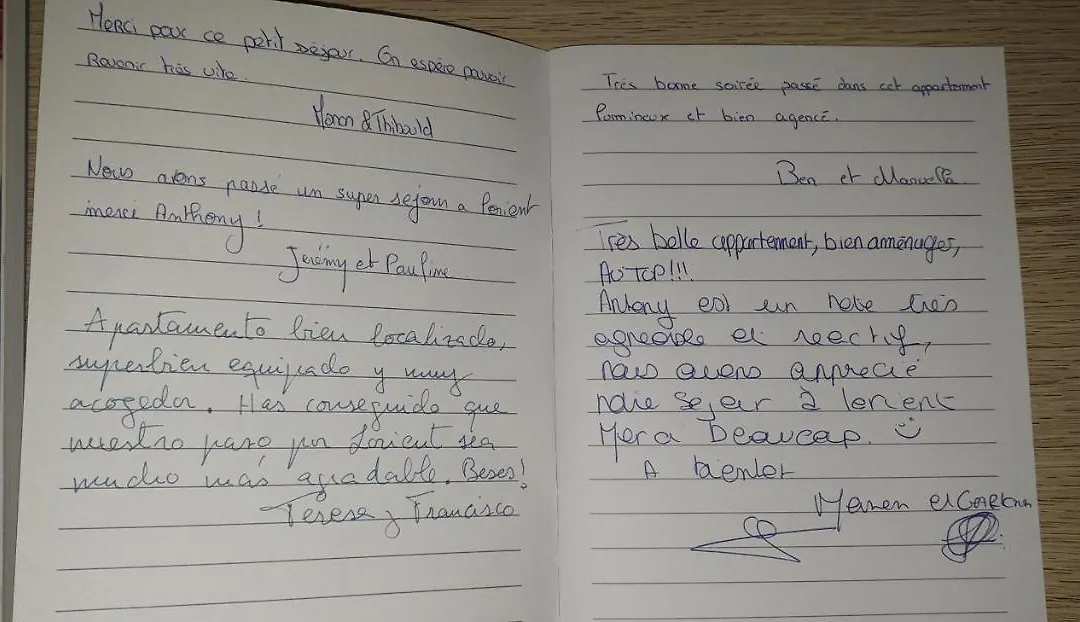 Merci pour ce petit séjour. On espère pouvoir
Revenir très vite.
Manon & Thibauld
Nous avons passé un super sejour a lorient
merci Anthony !
Jérémy et Pauline
Apartamento bien localizado,
superbien equipado y muy
acogedor. Has conseguido que
nuestro paso por Lorient sea
mucho más agradable. Beses!
Teresa y Francisco
Très bonne soirée passé dans cet appartement
lumineux et bien agencé.
Ben et Manuella
Très belle appartement, bien aménages,
AU TOP!!!
Antony est un hote très
agréable et reactif,
nous avons apprecié
notre sejour à lorient
Merci beaucoup. ☺
A bientot
Manon et